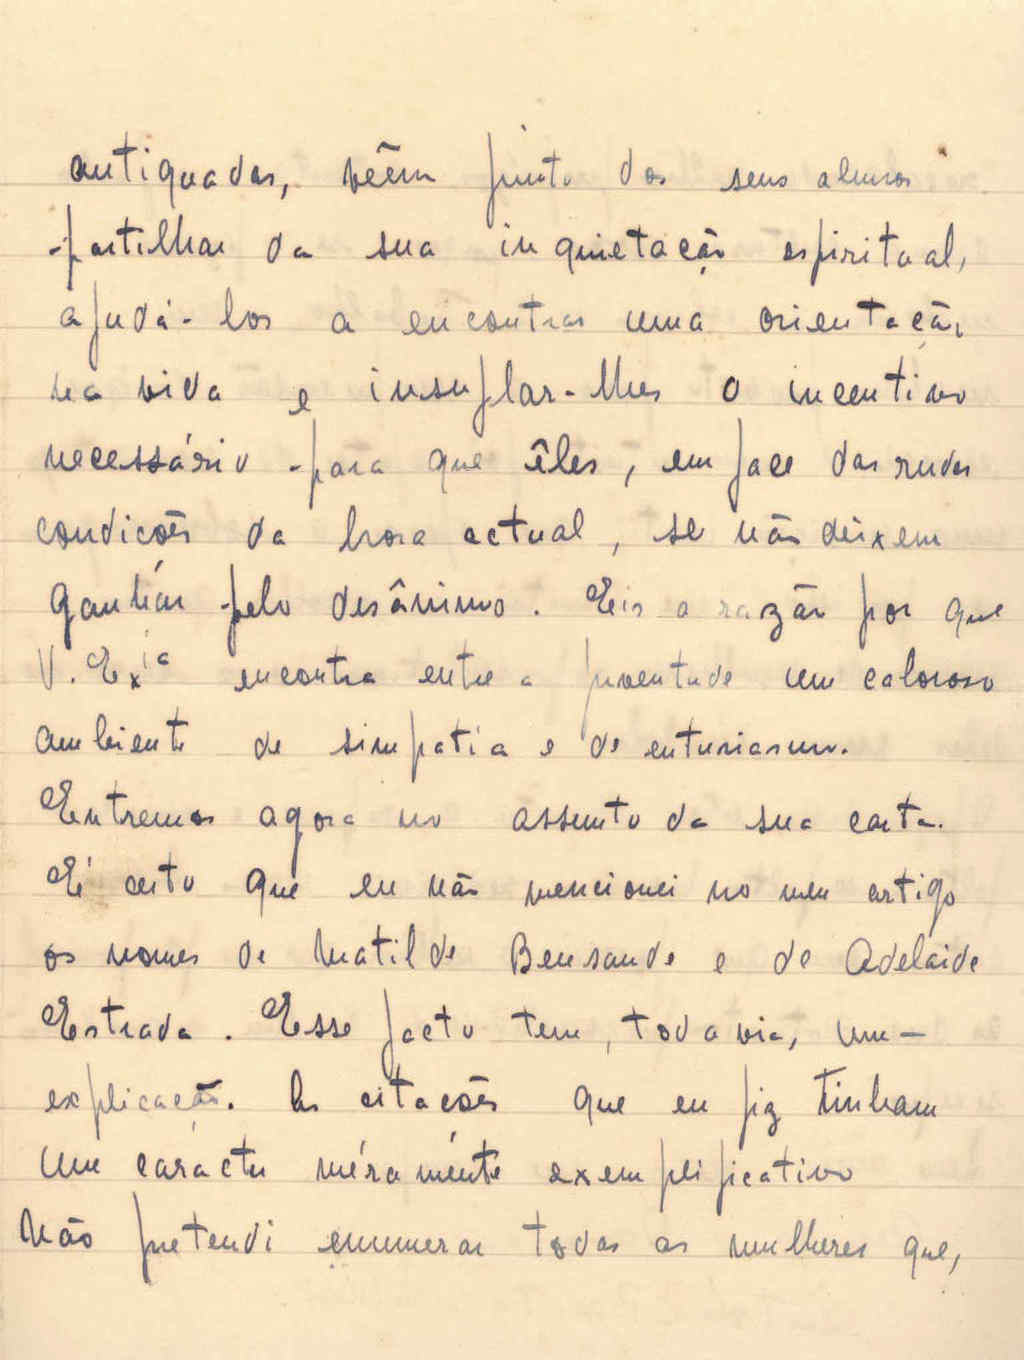 antiquadas, vêem junto dos seus alunos
partilhar da sua inquietação espiritual,
ajudá-los a encontrar uma orientação
na vida e insuflar-lhes o incentivo
necessário para que êles, em face das rudes
condições da hora actual, se não deixem
ganhár pelo desânimo. Eis a razão por que
V. Exia encontra entre a juventude um caloroso
ambiente de simpatia e de entusiasmo.
Entremos agora no assunto da sua carta.
É certo que eu não mencionei no meu artigo
os nomes de Matilde Bensaude e de Adelaide
Estrada. Esse facto tem, todavia, uma
explicação. As citações que eu fiz tinham
um carácter méramente exemplificativo
Não pretendi enumerar todas as mulheres que,